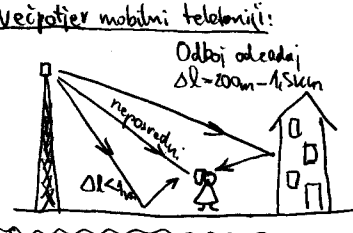 Večpotjev mobilni telefoniji:
Odboj odzadaj
Δl=200m-1,5km
neposredni
Δl<1m